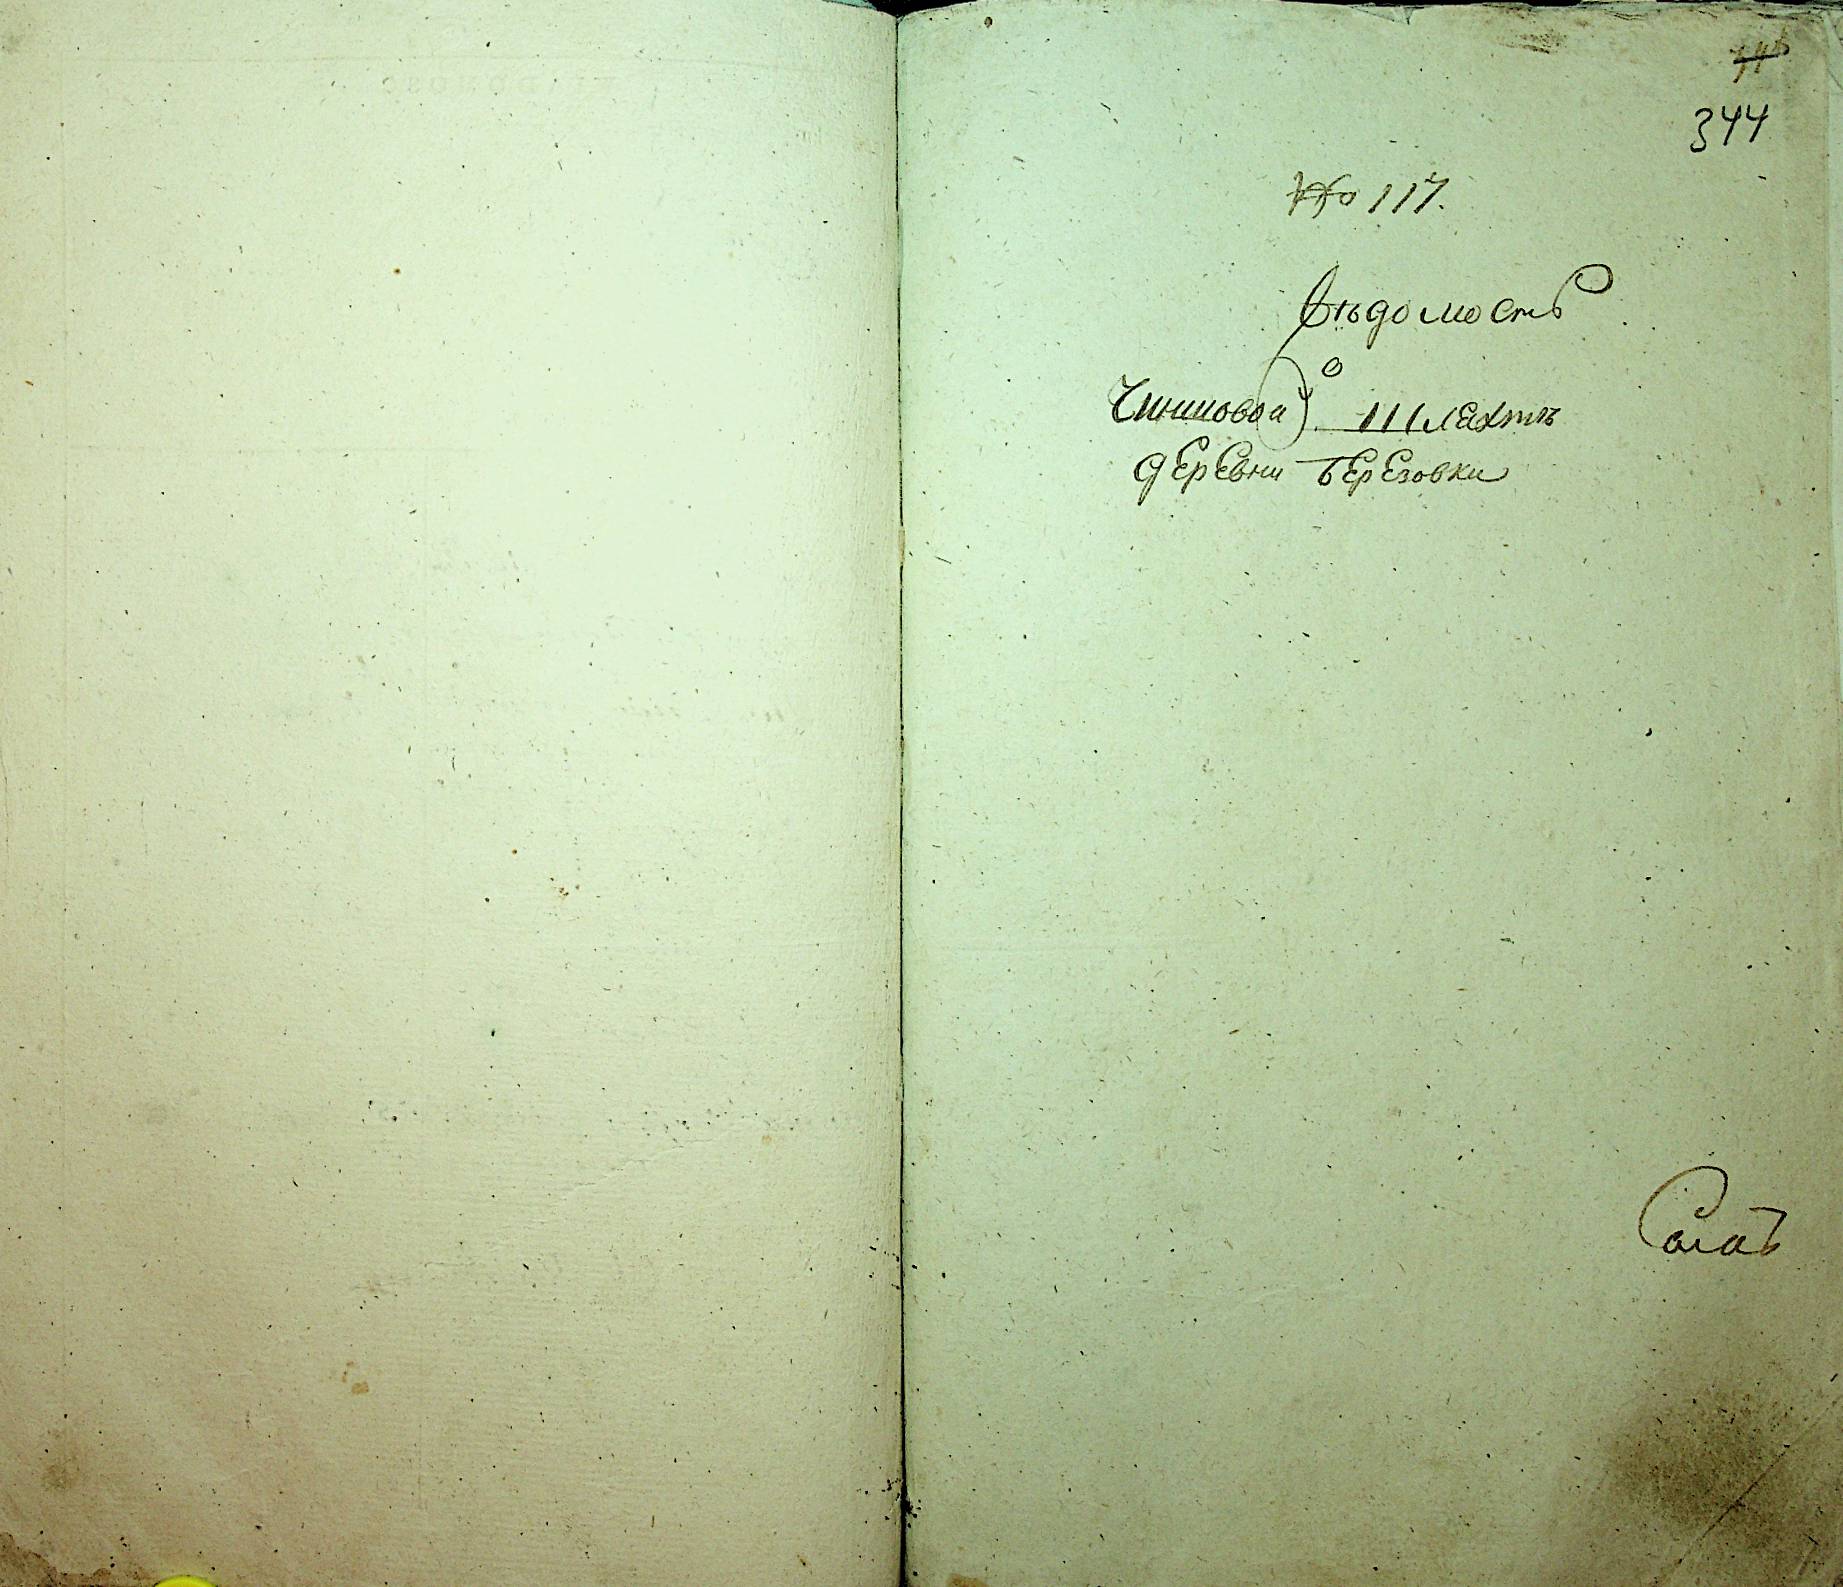 344
№ 117.
Вѣдомость
о
Чиншовой Шляхтѣ
деревни Березовки